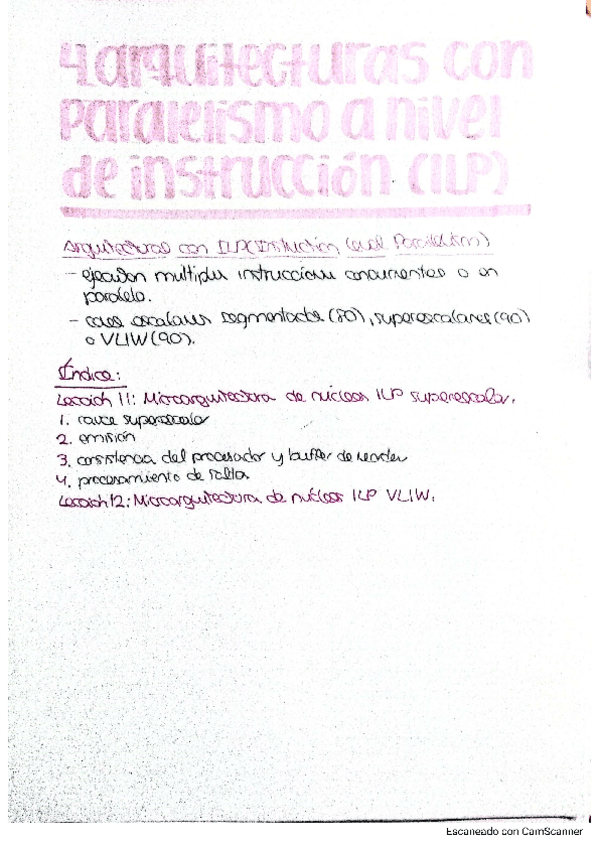 4 arquitecturas con
paralelismo a nivel
de instrucción (ILP)
Arquitecturas con ILP (Instruction Level Parallelism)
- ejecutan multiples instrucciones concurrentes o en
paralelo.
- cores escalares segmentados (80), superescalares (90)
o VLIW (90).
Índice:
Lección 11: Microarquitectura de núcleos ILP superescalar.
1. cauce superescalar
2. emisión
3. consistencia del procesador y buffer de reorden
4. procesamiento de saltos
Lección 12: Microarquitectura de núcleos ILP VLIW.
Escaneado con CamScanner